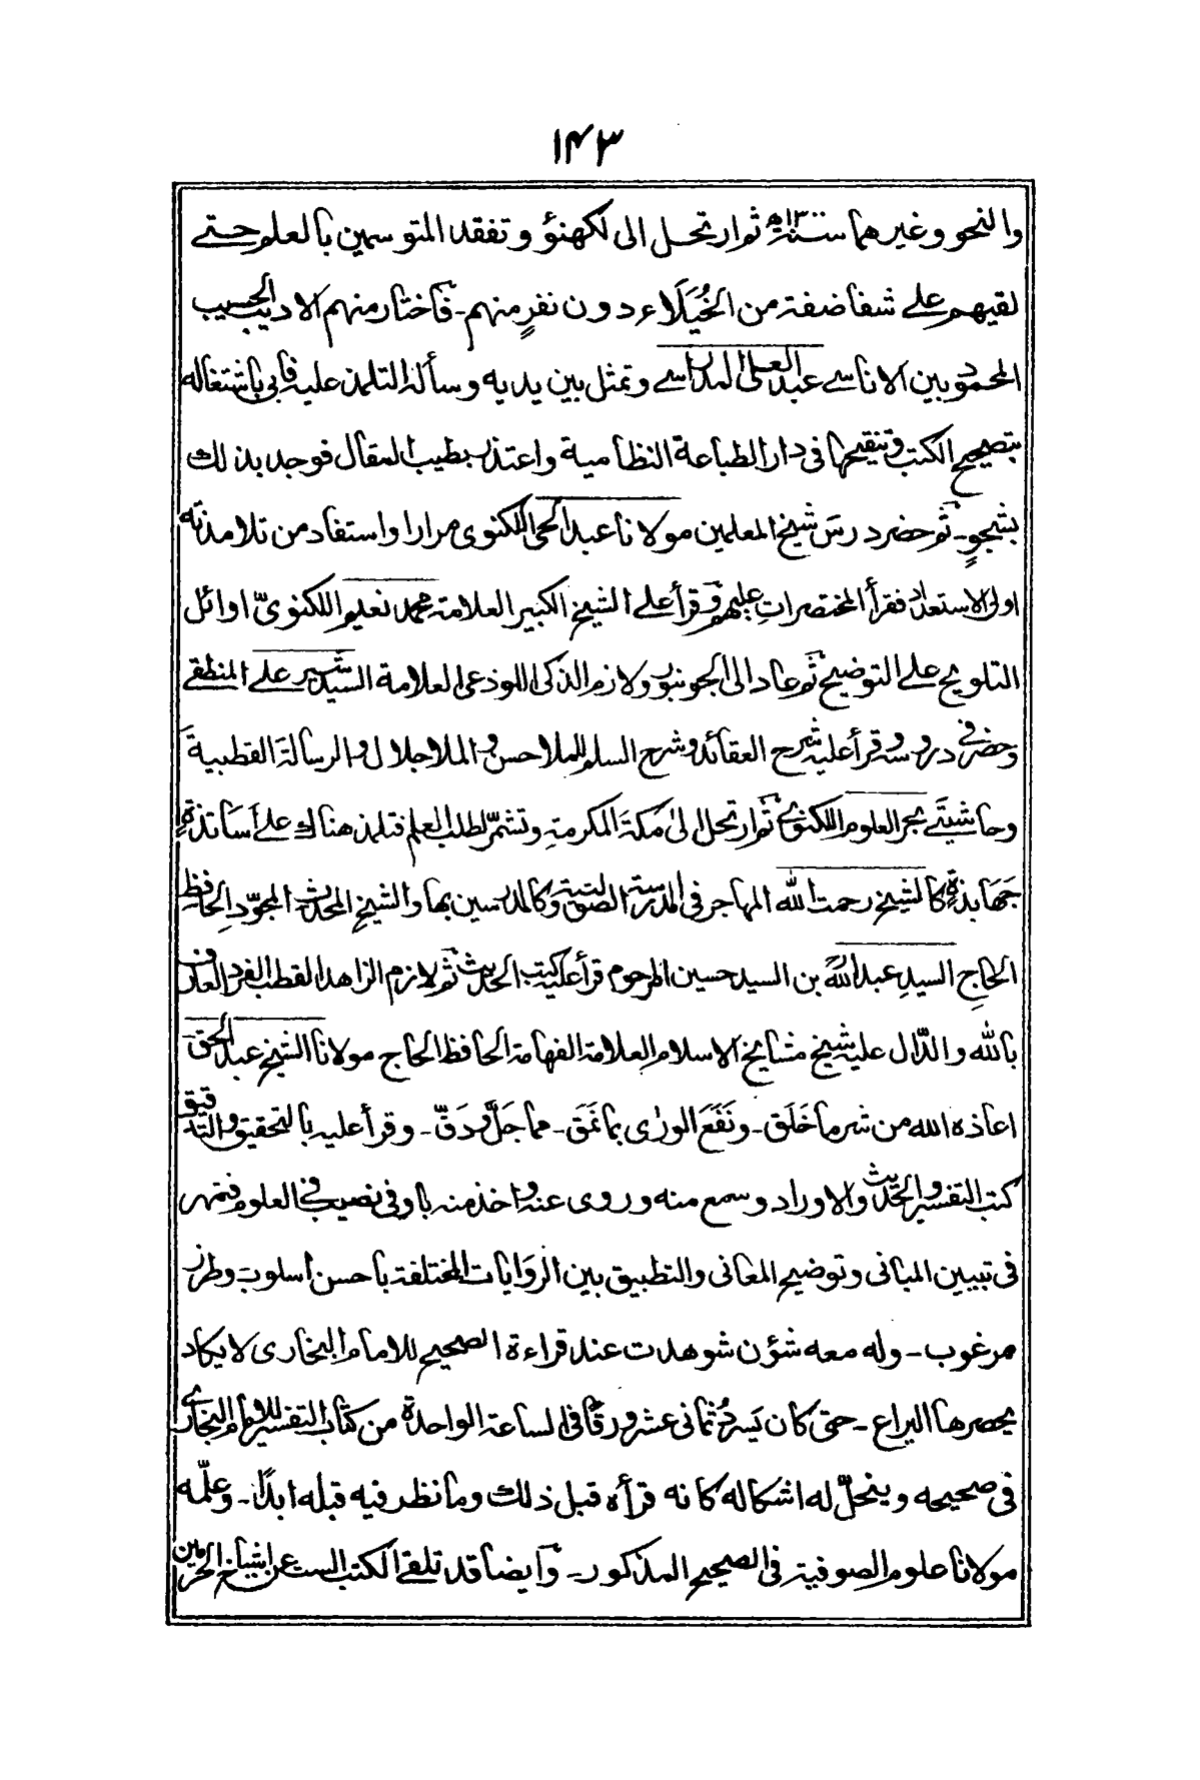 ١٤٣
والنحو وغيرهما سنة ١٣٠٠ھ ثم ارتحل الى لكهنؤ وتفقد المتوسمين بالعلوم حتے
لقيهم علے شفا ضفة من الخُيَلَاء دون نفرٍ منهم ـ فاختار منهم الاديب الحسيب
المحمود بين الاناسے عبد العلى المدراسے وتمثل بين يديه وسأله التلمذ عليه فابى باشتغاله
بتصحيح الكتب وتنقيحها فى دار الطباعة النظامية واعتذر بطيب المقال فوجد بذلك
بشجوٍ ـ ثم حضر درسَ شيخ المعلمين مولانا عبد الحى اللكنوى مرارا واستفاد من تلامذته
اولى الاستعداد فقرأ المختصراتِ عليهم وقرأ على الشيخ الكبير العلامة محمد نعيم اللكنوىّ اوائل
التلويح علے التوضيح ثم عاد الى الجونبور ولازم الذكى اللوذعى العلامة السيد شير علے المنطقے
وحضر فى دروسه وقرأ عليه شرح العقائد وشرح السلم للملا حسن والملا جلال والرسالةَ القطبيةَ
وحاشيتَے بحر العلوم اللكنوے ثم ارتحل الىٰ مكةَ المكرمةِ وتشمّر لطلب العلم فتلمذ هناك علے أساتذةٍ
جَهَابذةٍ كالشيخ رحمت الله المهاجر فى المدرسة الصولتية وكالمدرسين بها والشيخ المحدث المجوّدِ الحافظ
الحاجِ السيدِ عبد الله بن السيد حسين المرحوم قرأ عليه كتب الحديث ثم لازم الزاهد القطب الفرد العارف
بالله والدّال عليه شيخ مشايخ الاسلام العلامة الفهامة الحافظ الحاج مولانا الشيخ عبد الحق
اعاذه الله من شر ما خَلَق ـ ونَفَعَ الورٰى بما نَمَق ـ مما جَلَّ ودَقّ ـ وقرأ عليه بالتحقيق والتدقيق
كتب التفسير والحديث والاوراد وسمع منه وروى عنه واخذ منه باوفى نصيب فے العلوم فتمهر
فى تبيين المبانى وتوضيح المعانى والتطبيق بين الروايات المختلفة باحسن اسلوب وطرز
مرغوب ـ وله معه شؤن شوهدت عند قراءة الصحيح للامام البخارى لا يكاد
يحصرها اليراع ـ حتى كان يَسردُ ثمانى عشر ورقًا فى الساعة الواحدة من كتاب التفسير للامام البخارے
فى صحيحه وينحلّ له اشكاله كانه قرأه قبل ذلك وما نظر فيه قبله ابدًا ـ وعلّمه
مولانا علوم الصوفية فى الصحيح المذكور ـ وايضا قد تلقے الكتب الست عن اشياخ الحرمين